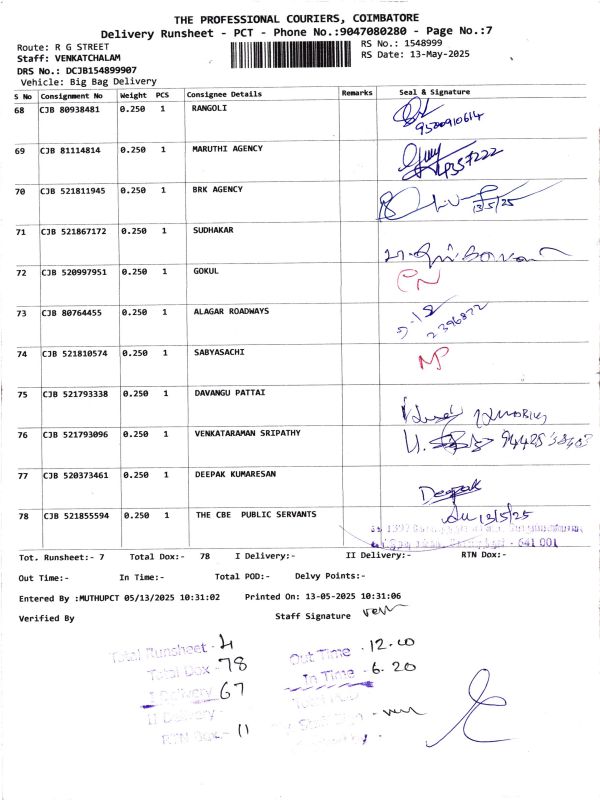 THE PROFESSIONAL COURIERS, COIMBATORE
Delivery Runsheet - PCT - Phone No.:9047080280 - Page No.:7
Route: R G STREET
RS No.: 1548999
Staff: VENKATCHALAM
RS Date: 13-May-2025
DRS No.: DCJB154899907
Vehicle: Big Bag Delivery
S No Consignment No Weight PCS Consignee Details Remarks Seal & Signature
68 CJB 80938481 0.250 1 RANGOLI
9500910614
69 CJB 81114814 0.250 1 MARUTHI AGENCY
70 CJB 521811945 0.250 1 BRK AGENCY
13/5/25
71 CJB 521867172 0.250 1 SUDHAKAR
72 CJB 520997951 0.250 1 GOKUL
CN
73 CJB 80764455 0.250 1 ALAGAR ROADWAYS
2396872
74 CJB 521810574 0.250 1 SABYASACHI
NP
75 CJB 521793338 0.250 1 DAVANGU PATTAI
76 CJB 521793096 0.250 1 VENKATARAMAN SRIPATHY
77 CJB 520373461 0.250 1 DEEPAK KUMARESAN
Deepak
78 CJB 521855594 0.250 1 THE CBE PUBLIC SERVANTS
13/5/25
641 001
Tot. Runsheet:- 7 Total Dox:- 78 I Delivery:- II Delivery:- RTN Dox:-
Out Time:- In Time:- Total POD:- Delvy Points:-
Entered By :MUTHUPCT 05/13/2025 10:31:02 Printed On: 13-05-2025 10:31:06
Verified By Staff Signature
Total Runsheet - 4
Total Dox - 78
I Delivery 67
II Delivery -
RTN Dox - 11
Out Time - 12.00
In Time - 6.20
Total POD